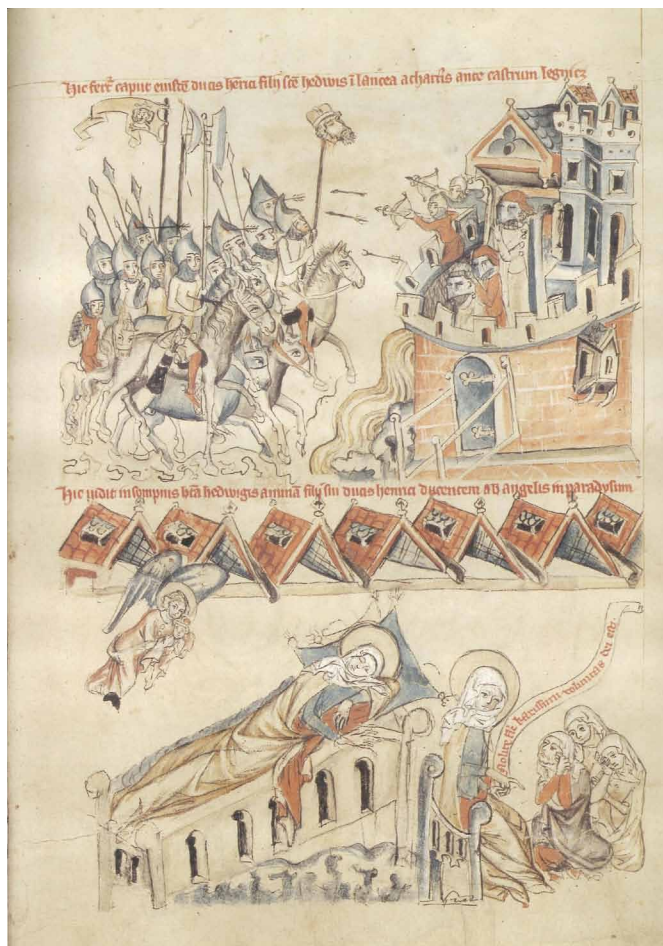 Hic fert᷑ caput eiusdē ducis hēnrici filij scē hedwigis ī lancea a thartis ante castrum legnicz
Hic vidit in sompnis btā hedwigis animā filij sui ducis henrici ducentem ab angelis in paradysum
filiole voluntas dei est